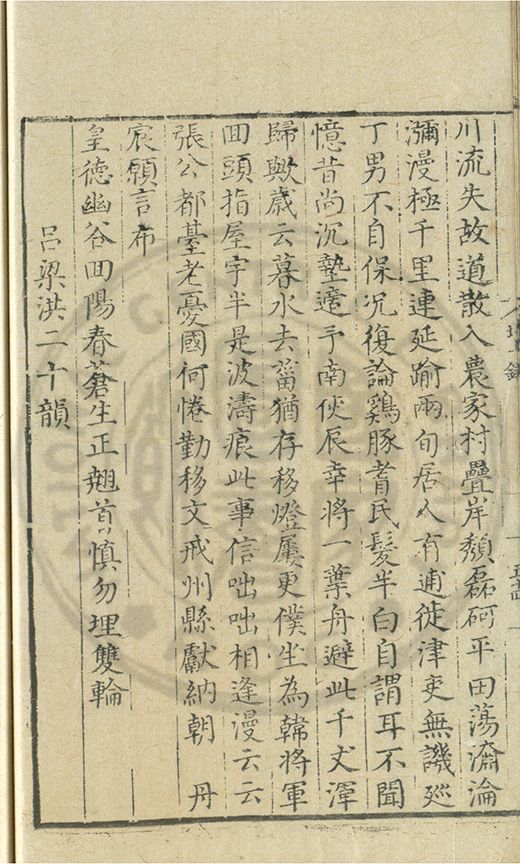 川流失故道散入農家村疊岸頹磊砢平田蕩潏淪
瀰漫極千里連延踰兩旬居人有逋徙津吏無譏廵
丁男不自保况復論鷄豚耆民髮半白自謂耳不聞
憶昔尚沉墊遭予南使辰幸將一葉舟避此千丈渾
歸歟歲云暮水去菑猶存移燈屢更僕坐為韓將軍
囬頭指屋宇半是波濤痕此事信咄咄相逢漫云云
張公都臺老憂國何惓勤移文戒州縣獻納朝 丹
宸願言布
皇德幽谷囬陽春蒼生正翹首慎勿埋雙輪
吕梁洪二十韻